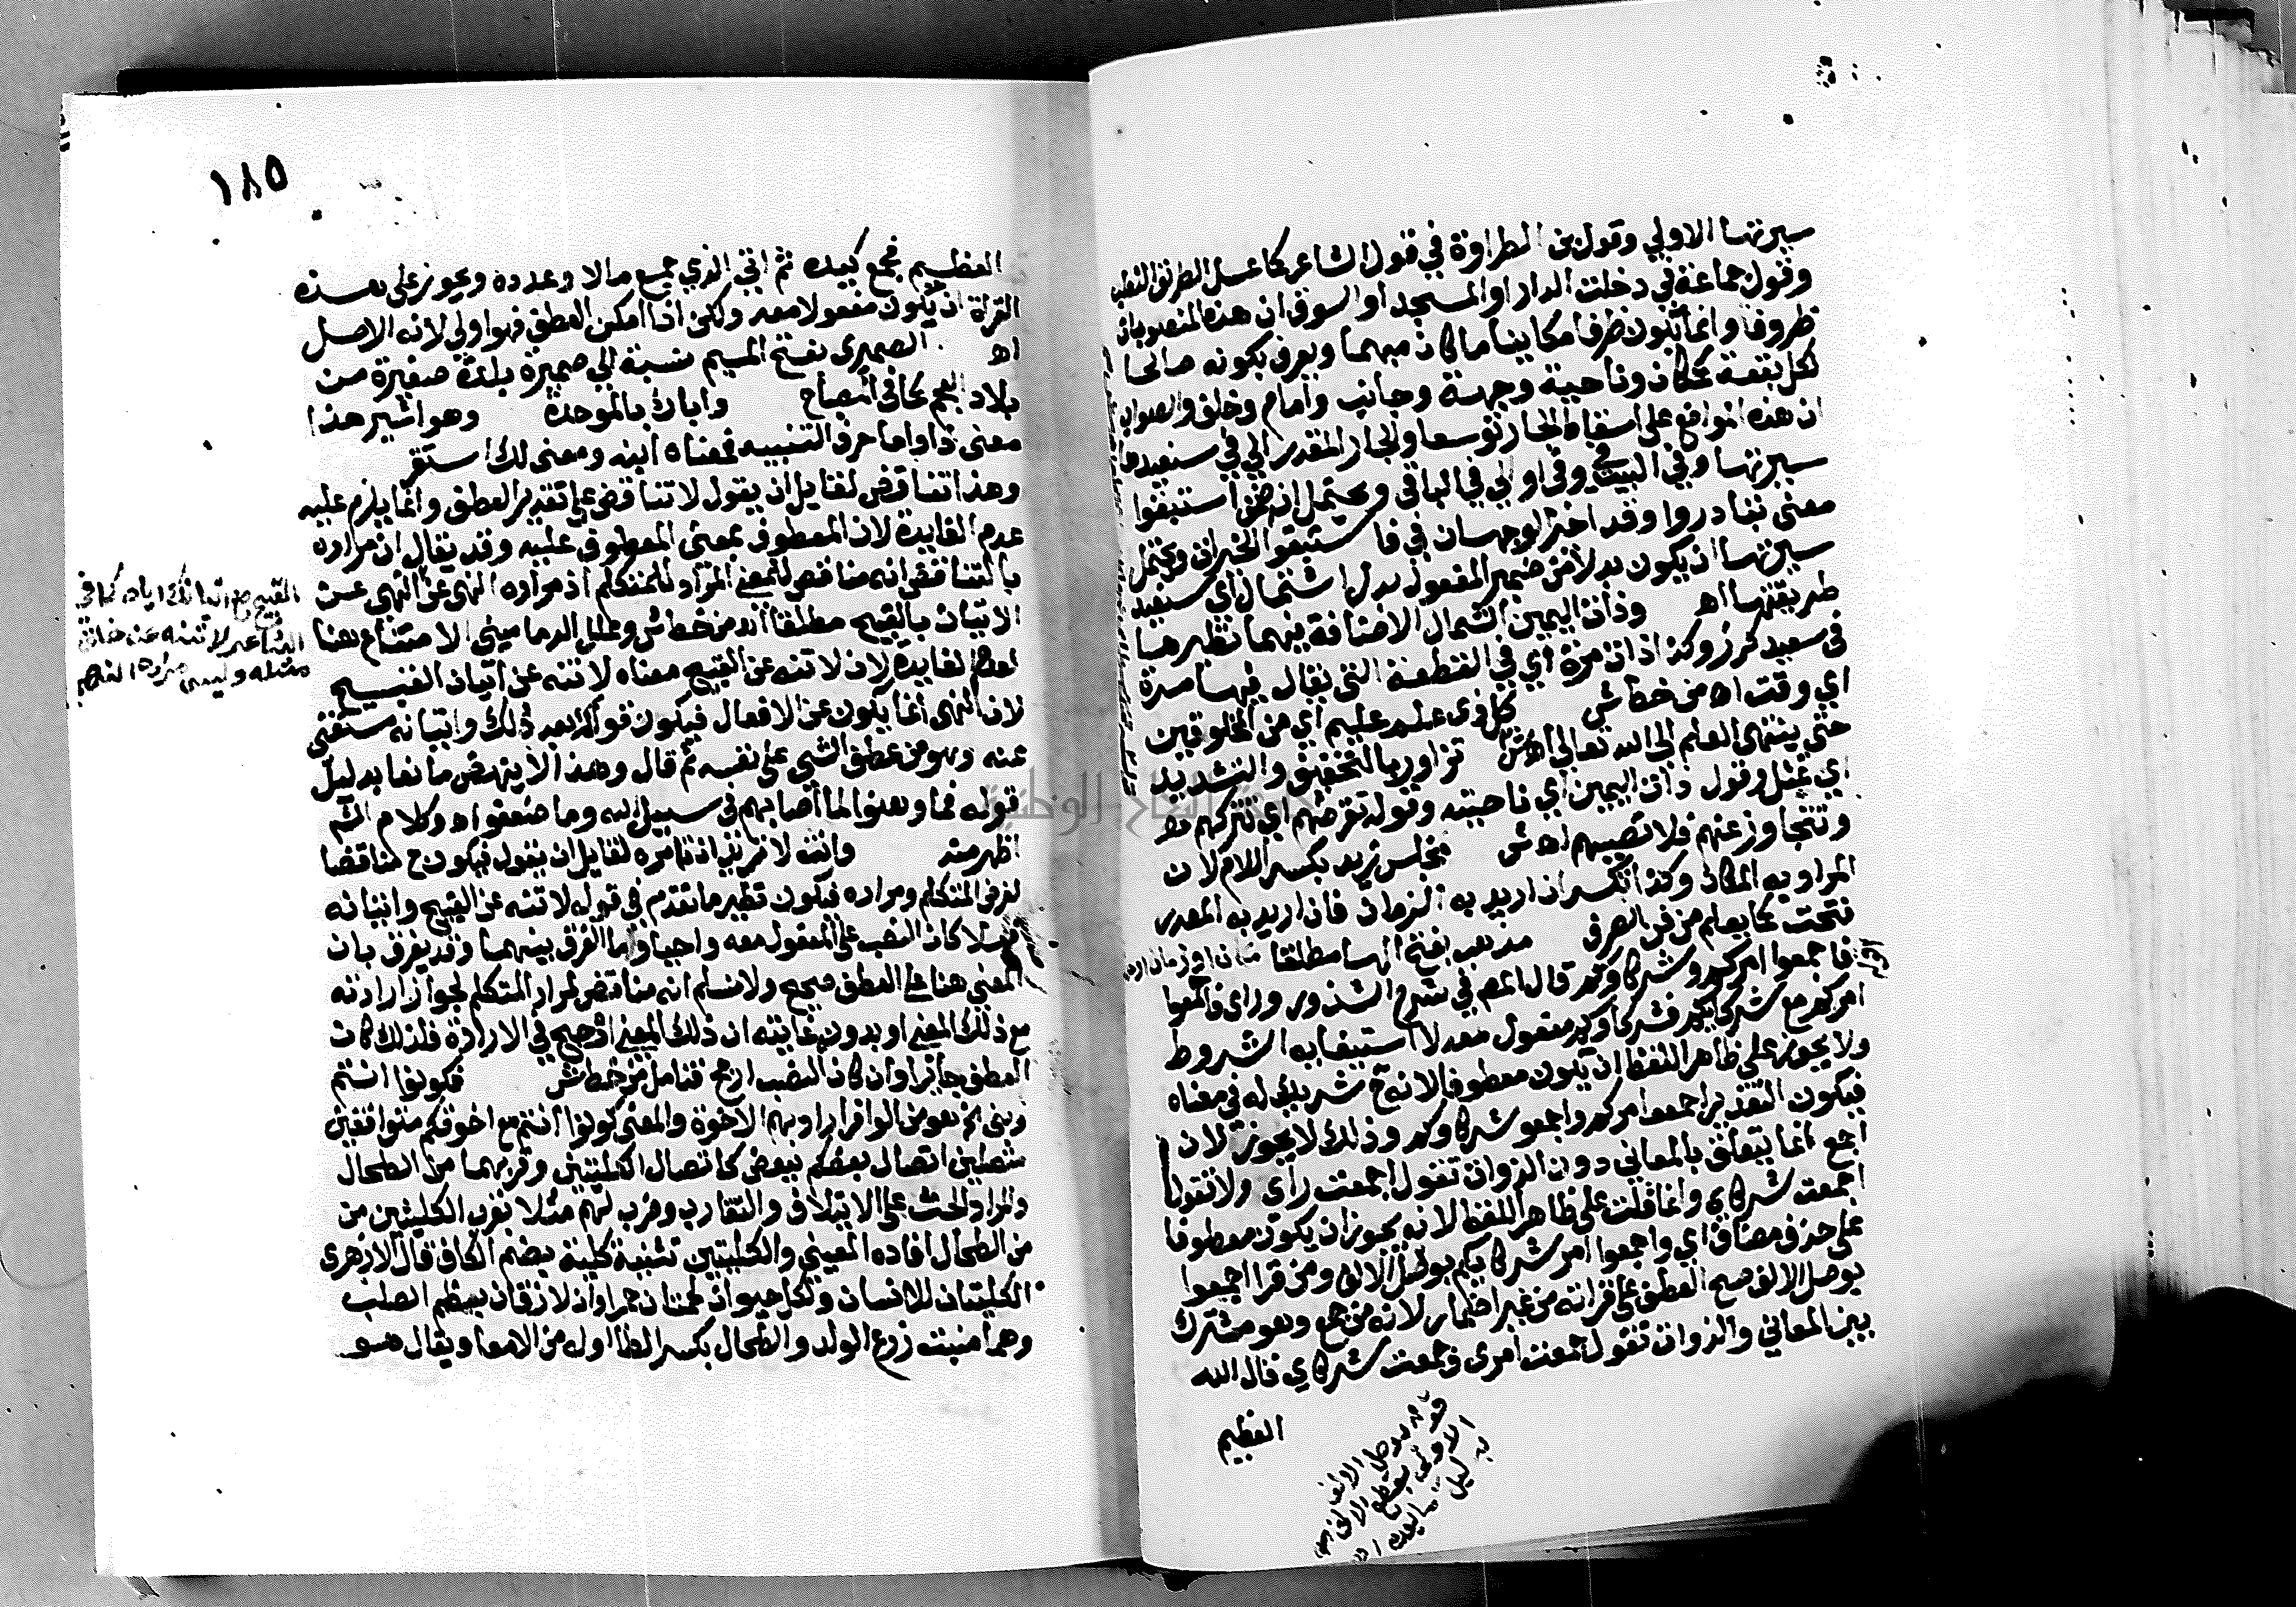 سيرتها الاولي وقول بن الطراوة في قول الشاعر كما عسل الطريق الثعلب
وقول جماعة في دخلت الدار او المسجد او السوق ان هذه المنصوبات
ظروف وانما يكون ظرفا مكانيا ما كان مبهما ويعرف بكونه صالحا
لكل بقعة كمكان وناحية وجهة وجانب وامام وخلف والصواب
ان هذه المواقع على اسقاط الجار توسعا والجار المقدر الي في سنعيدها
سيرتها وفي في البيت وفي او الي في الباقي ويحتمل انه ضمن استبقوا
معنى تبادروا وقد اجيز الوجهان في فاستبقوا الخيرات ويحتمل
سيرتها ان يكون بدلا من ضمير المفعول بدل اشتمال اي سنعيد
طريقتها اهـ وذات اليمين الشمال الاضافة بينهما نظيرها
في سعيد كرز وكذا ذات مرة اي في القطعة التي يقال فيها مرة
اي وقت اهـ من خط ش كل ذي علم عليم اي من المخلوقين
حتى ينتهي العلم الي الله تعالى اهـ ش تزاور بالتخفيف والتشديد
اي تميل وقول ذات اليمين اي ناحيته وقوله تقرضهم اي تتركهم
وتتجاوز عنهم فلا تصيبهم اهـ ش مجلس زيد بكسر اللام لان
المراد به المكان وكذا تكسر ان اريد به الزمان فان اريد به المصدر
فتحت كما يعلم من فن الصرف مذهب بفتح الهاء مطلقا
فاجمعوا امركم وشركاءكم قال المص في شرح الشذور وراى فاجمعوا
امركم مع شركائكم فشركاءكم مفعول معه لاستيفائه الشروط
ولا يجوز على ظاهر اللفظ ان يكون معطوفا لانه ح شريك له في معناه
فيكون التقدير اجمعوا امركم واجمعوا شركاءكم وذلك لا يجوز لان
اجمع انما يتعلق بالمعاني دون الذوات تقول اجمعت رأى ولا تقول
اجمعت شركاى وانما قلت على ظاهر اللفظ لانه يجوز ان يكون معطوفا
على حذف مضاف اي واجمعوا امر شركايكم بوصل الالف ومن قرا اجمعوا
بوصل الالف صح العطف على قراته من غير اضمار لانه من جمع وهو مشترك
بين المعاني والذوات تقول جمعت امرى وجمعت شركاي قال الله
العظيم
١٨٥
العظيم فجمع كيده ثم اتى الذي جمع مالا وعدده ويجوز على هذه
القراة ان يكون مفعولا معه ولكن اذا امكن العطف فهو اولي لانه الاصل
اهـ الصيمرى بفتح الميم نسبة الي صيمرة بلدة صغيرة من
بلاد العجم كما في المصباح واباك بالموحدة وهو اشير هذا
معنى ذا واما حرف التنبيه فمعناه انبه ومعنى لك استقر
وهذا تناقض لقايل ان يقول لا تناقض على تقدير العطف وانما يلزم عليه
عدم الفايدة لان المعطوف بمعنى المعطوف عليه وقد يقال ان مراده
بالتناقض انه مناقض للمعنى المراد للمتكلم اذ مراده النهي عن النهي عن
الاتيان بالقبيح مطلقا اهـ من خط ش وعلل الدماميني الامتناع هنا
لعدم الفايدة لان لا تنه عن القبيح معناه لا تنه عن اتيان القبيح
لان النهى انما يكون عن الافعال فيكون قوله بعد ذلك واتيانه مستغنى
عنه وهو من عطف الشي على نفسه ثم قال وهذا لا ينهض مانعا بدليل
قوله فما وهنوا لما اصابهم في سبيل الله وما ضعفوا اهـ وكلام الش
اظهر منه وانت لا تريد ان تامره لقايل ان يقول فيكون ح مناقضا
لغرض المتكلم ومراده فيكون نظير ما تقدم في قوله لا تنه عن القبيح واتيانه
فهلا كان النصب على المفعول معه واجبا وما الفرق بينهما وقد يفرق بان
المعنى هنا على العطف صحيح ولا نسلم انه مناقض لمراد المتكلم لجواز ارادته
مع ذلك المعنى او بدونه غايته ان ذلك المعنى ارجح في الارادة فلذلك كان
العطف جائزا وان كان النصب ارجح فتامل من خط ش فكونوا انتم
وبنى هو من الوافر اراد بهم الاخوة والمعنى كونوا انتم مع اخوتكم متوافقين
متصلين اتصال بعضكم ببعض كاتصال الكليتين وقربهما من الطحال
والمراد الحث على الايتلاف والتقارب وضرب لهم مثلا بقرب الكليتين من
من الطحال افاده العيني والكليتين تثنية كلية بضم الكاف قال الازهرى
الكليتان للانسان ولكل حيوان لحمتان حمراوان لازقتان بعظم الصلب
وهما منبت زرع الولد والطحال بكسر الطا اوله من الامعا ويقال هو